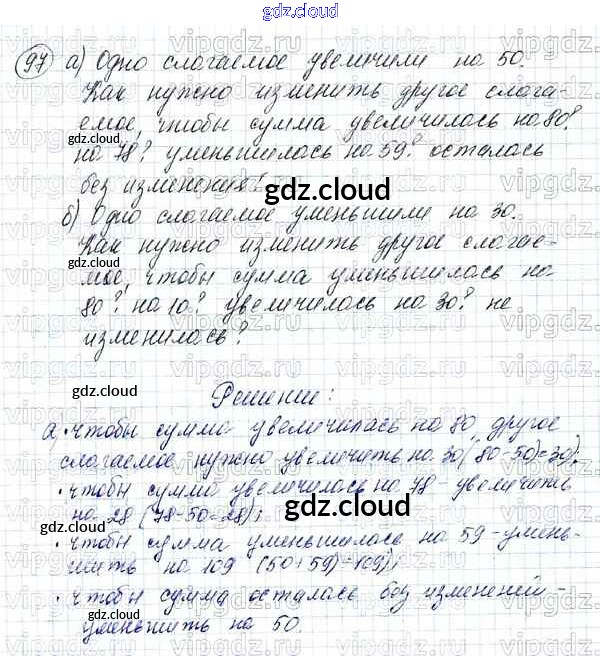 gdz.cloud
97 а) Одно слагаемое увеличили на 50.
Как нужно изменить другое слага-
емое, чтобы сумма увеличилась на 80?
на 78? уменьшилась на 59? осталась
без изменения?
gdz.cloud
б) Одно слагаемое уменьшили на 30.
Как нужно изменить другое слагае-
gdz.cloud
мое, чтобы сумма уменьшилась на
80? на 10? увеличилась на 30? не
изменилась?
gdz.cloud
Решение:
gdz.cloud
а) • чтобы сумма увеличилась на 80, другое
слагаемое нужно увеличить на 30 (80-50)=30);
• чтобы сумма увеличилась на 78 - увеличить
на 28 (78-50=28);
gdz.cloud
gdz.cloud
• чтобы сумма уменьшилась на 59 - умень-
шить на 109 (50+59)=109);
• чтобы сумма осталась без изменений -
gdz.cloud
уменьшить на 50.
gdz.cloud